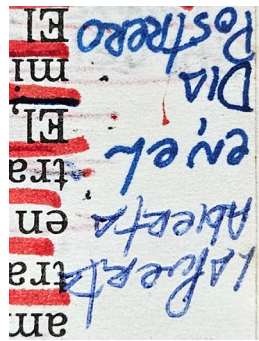 La Puerta
Abierta
en el
Dia
Postrero
am
tra
en
tra
El,
mi
El